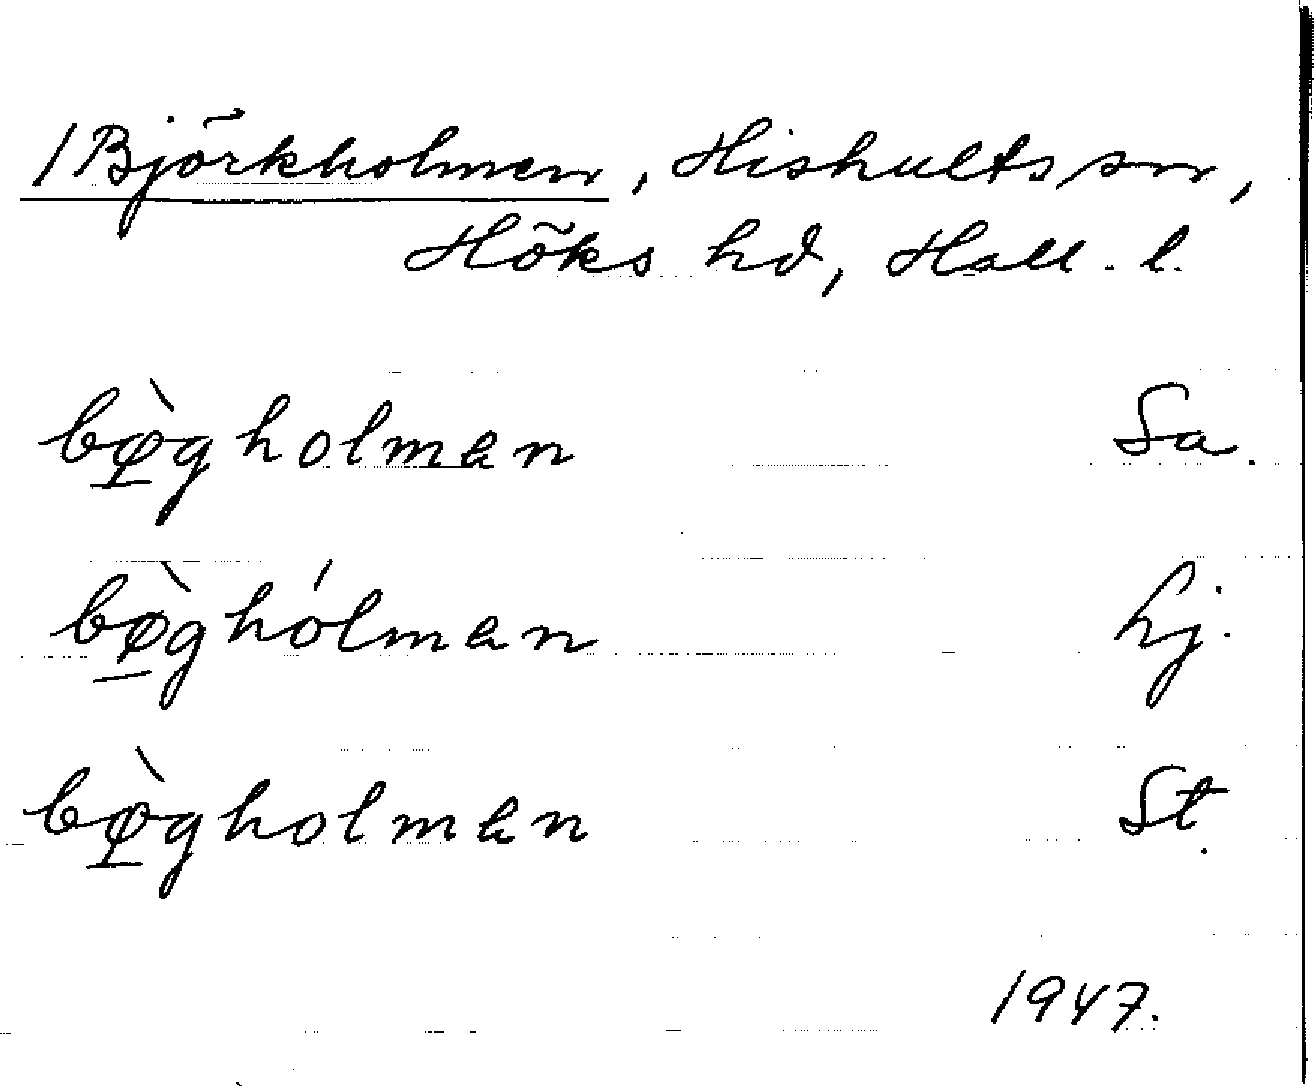 /Björkholmen, Hishults sn,
Höks hd, Hall. l.
bø̱̀gholman Sa.
bø̱̀ghólman hj.
bø̱̀gholman St.
1947.